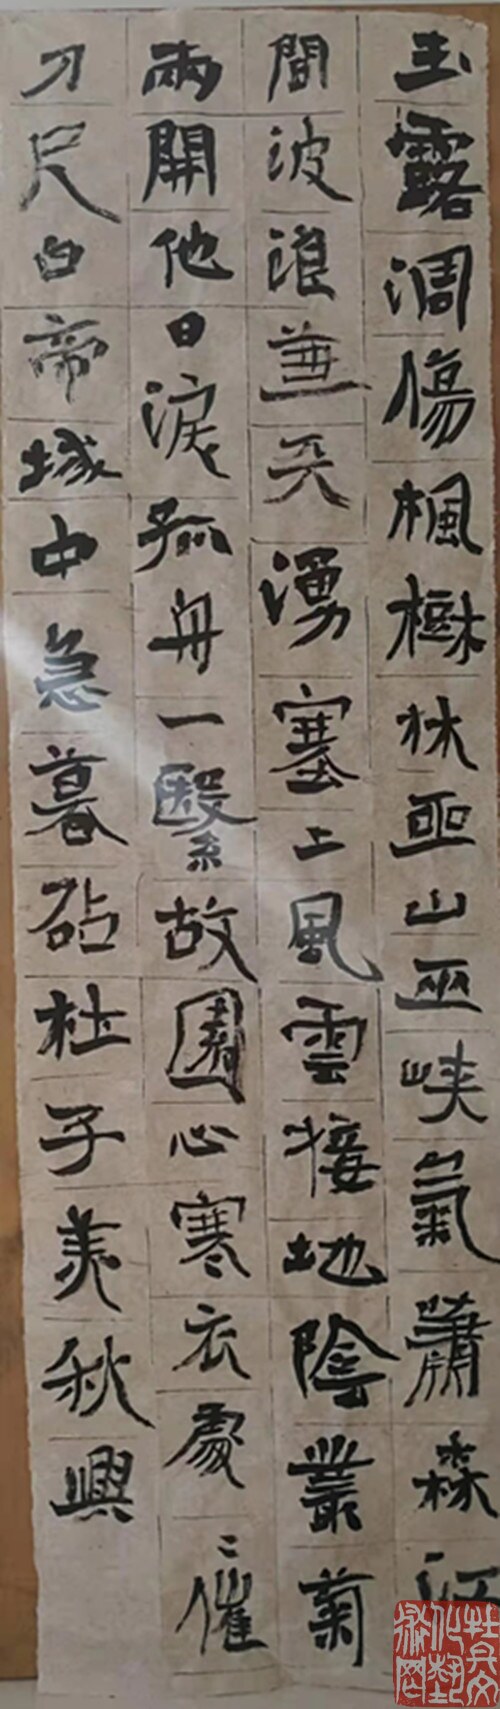 玉露凋傷楓樹林巫山巫峡氣蕭森江
間波浪兼天湧塞上風雲接地陰叢菊
兩開他日淚孤舟一繫故園心寒衣處〻催
刀尺白帝城中急暮砧杜子美秋興